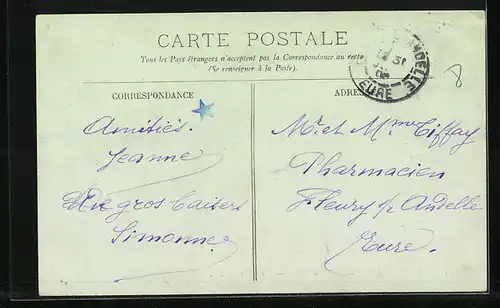 CARTE POSTALE
Tous les Pays étrangers n'acceptent pas la Correspondance au recto
(Se renseigner à la Poste).
CORRESPONDANCE
ADRES
ANDELLE
EURE
31
8
Amitiés.
Jeanne
Un gros baisers
Simonne
Mr et Mme Tiffay
Pharmacien
Fleury s/ Andelle
Eure.